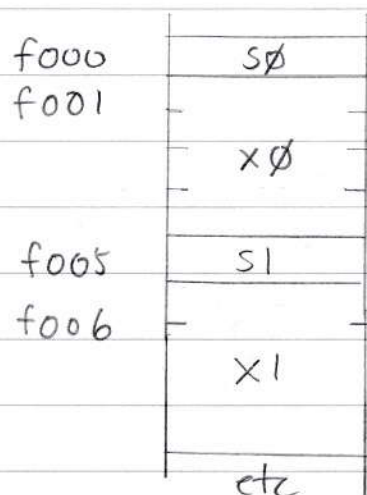 f000 sØ
f001
xØ
f005 s1
f006
x1
etc